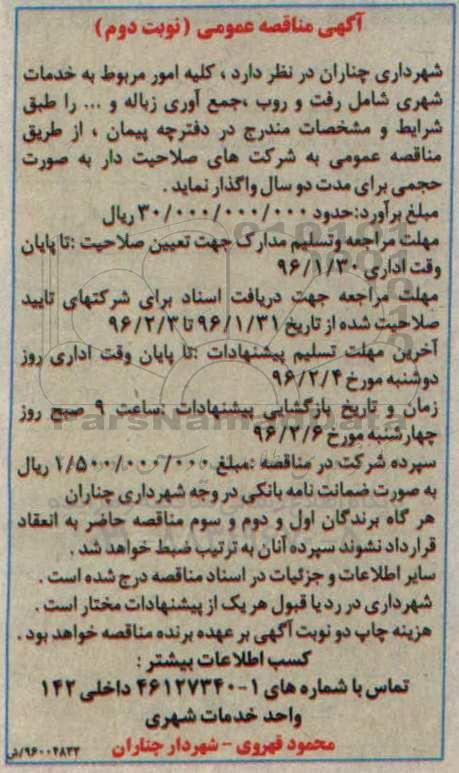 آگهی مناقصه عمومی (نوبت دوم)
شهرداری چناران در نظر دارد ، کلیه امور مربوط به خدمات
شهری شامل رفت و روب ،جمع آوری زباله و ... را طبق
شرایط و مشخصات مندرج در دفترچه پیمان ، از طریق
مناقصه عمومی به شرکت های صلاحیت دار به صورت
حجمی برای مدت دو سال واگذار نماید .
مبلغ برآورد:حدود ۳۰/۰۰۰/۰۰۰/۰۰۰ ریال
مهلت مراجعه وتسلیم مدارک جهت تعیین صلاحیت :تا پایان
وقت اداری ۹۶/۱/۳۰
مهلت مراجعه جهت دریافت اسناد برای شرکتهای تایید
صلاحیت شده از تاریخ ۹۶/۱/۳۱ تا ۹۶/۲/۳
آخرین مهلت تسلیم پیشنهادات :تا پایان وقت اداری روز
دوشنبه مورخ ۹۶/۲/۴
زمان و تاریخ بازگشایی پیشنهادات :ساعت ۹ صبح روز
چهارشنبه مورخ ۹۶/۲/۶
ParsNamadData
سپرده شرکت در مناقصه :مبلغ ۱/۵۰۰/۰۰۰/۰۰۰ ریال
به صورت ضمانت نامه بانکی در وجه شهرداری چناران
هر گاه برندگان اول و دوم و سوم مناقصه حاضر به انعقاد
قرارداد نشوند سپرده آنان به ترتیب ضبط خواهد شد .
سایر اطلاعات و جزئیات در اسناد مناقصه درج شده است .
شهرداری در رد یا قبول هر یک از پیشنهادات مختار است .
هزینه چاپ دو نوبت آگهی بر عهده برنده مناقصه خواهد بود .
کسب اطلاعات بیشتر :
تماس با شماره های ۱-۴۶۱۲۷۳۴۰ داخلی ۱۴۲
واحد خدمات شهری
محمود قهروی - شهردار چناران
۹۶۰۰۲۸۳۳/ش